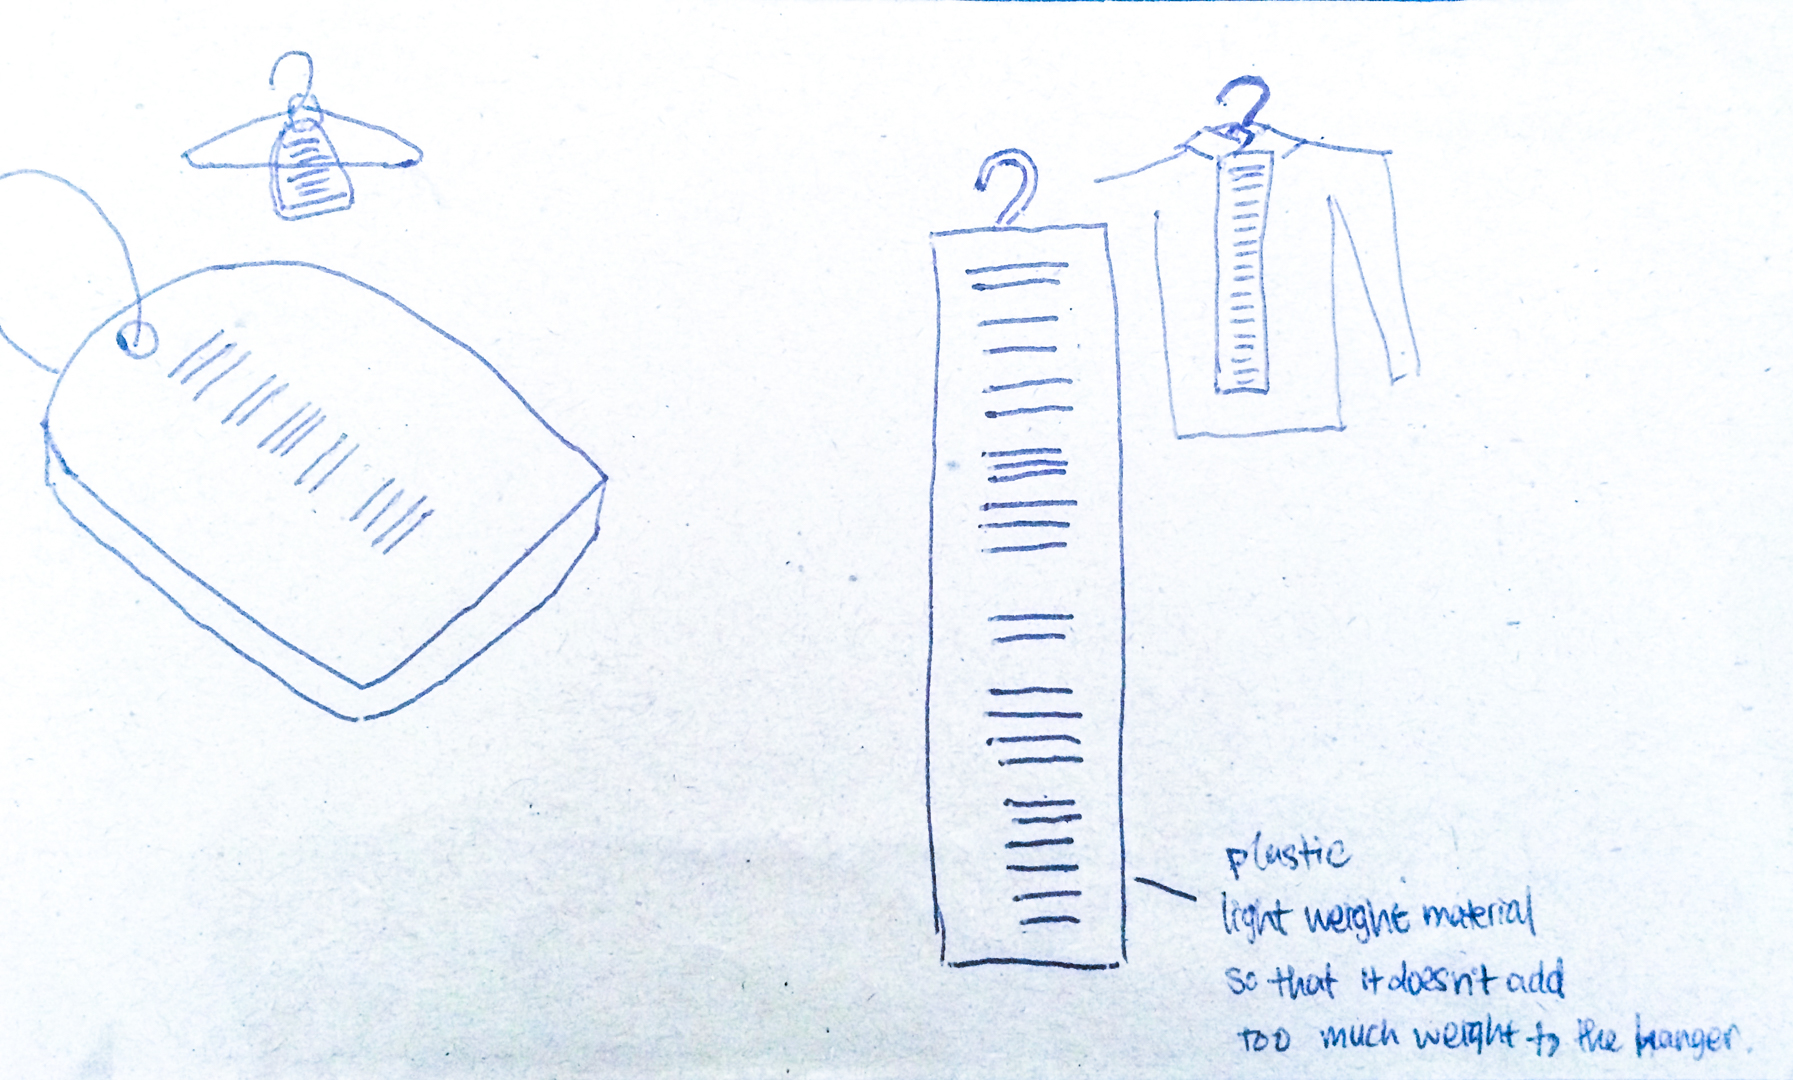 plastic
light weight material
so that it doesn't add
too much weight to the hanger.